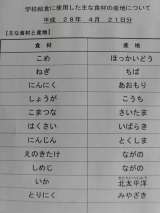 学校給食に使用した主な食材の産地について
平成 28年 4月 21日分
【主な食材と産地】
食材 産地
こめ ほっかいどう
ねぎ ちば
にんにく あおもり
しょうが こうち
こまつな さいたま
はくさい いばらき
にんじん とくしま
えのきたけ ながの
しめじ ながの
いか 北太平洋
とりにく みやざき